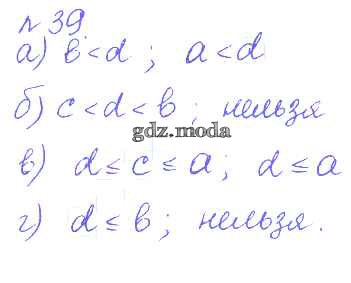 № 39.
а) b < d ; a < d
б) c < d < b ; нельзя
gdz.moda
в) d ≤ c ≤ a ; d ≤ a
г) d ≤ b ; нельзя.